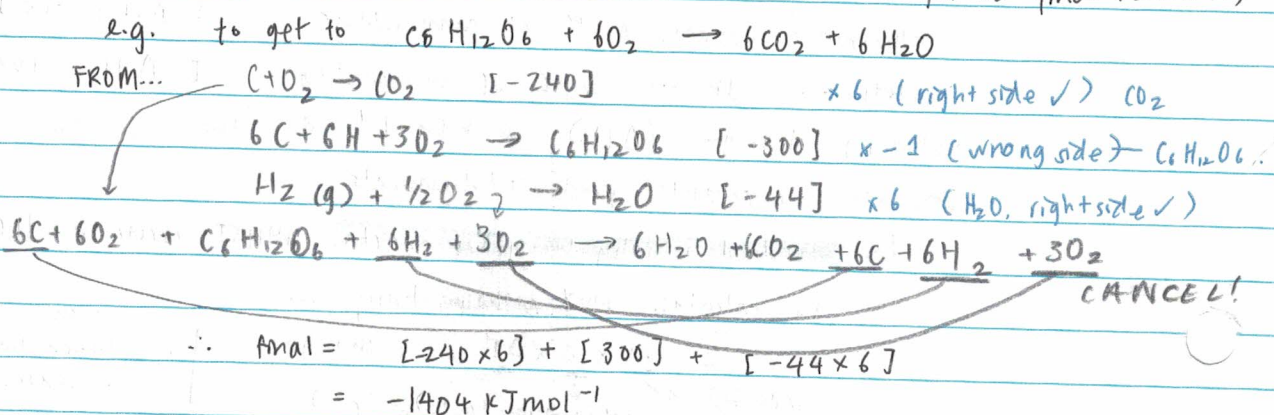 e.g. to get to C6 H12O6 + 6O2 → 6CO2 + 6 H2O
FROM... C+O2 → CO2 [-240] × 6 (right side ✓) CO2
6C + 6H + 3O2 → C6H12O6 [-300] × -1 (wrong side) C6H12O6..
H2 (g) + 1/2 O2 → H2O [-44] × 6 (H2O, right side ✓)
6C + 6O2 + C6H12O6 + 6H2 + 3O2 → 6H2O + 6CO2 + 6C + 6H2 + 3O2
CANCEL!
∴ final = [-240 × 6] + [300] + [-44 × 6]
= -1404 kJmol-1